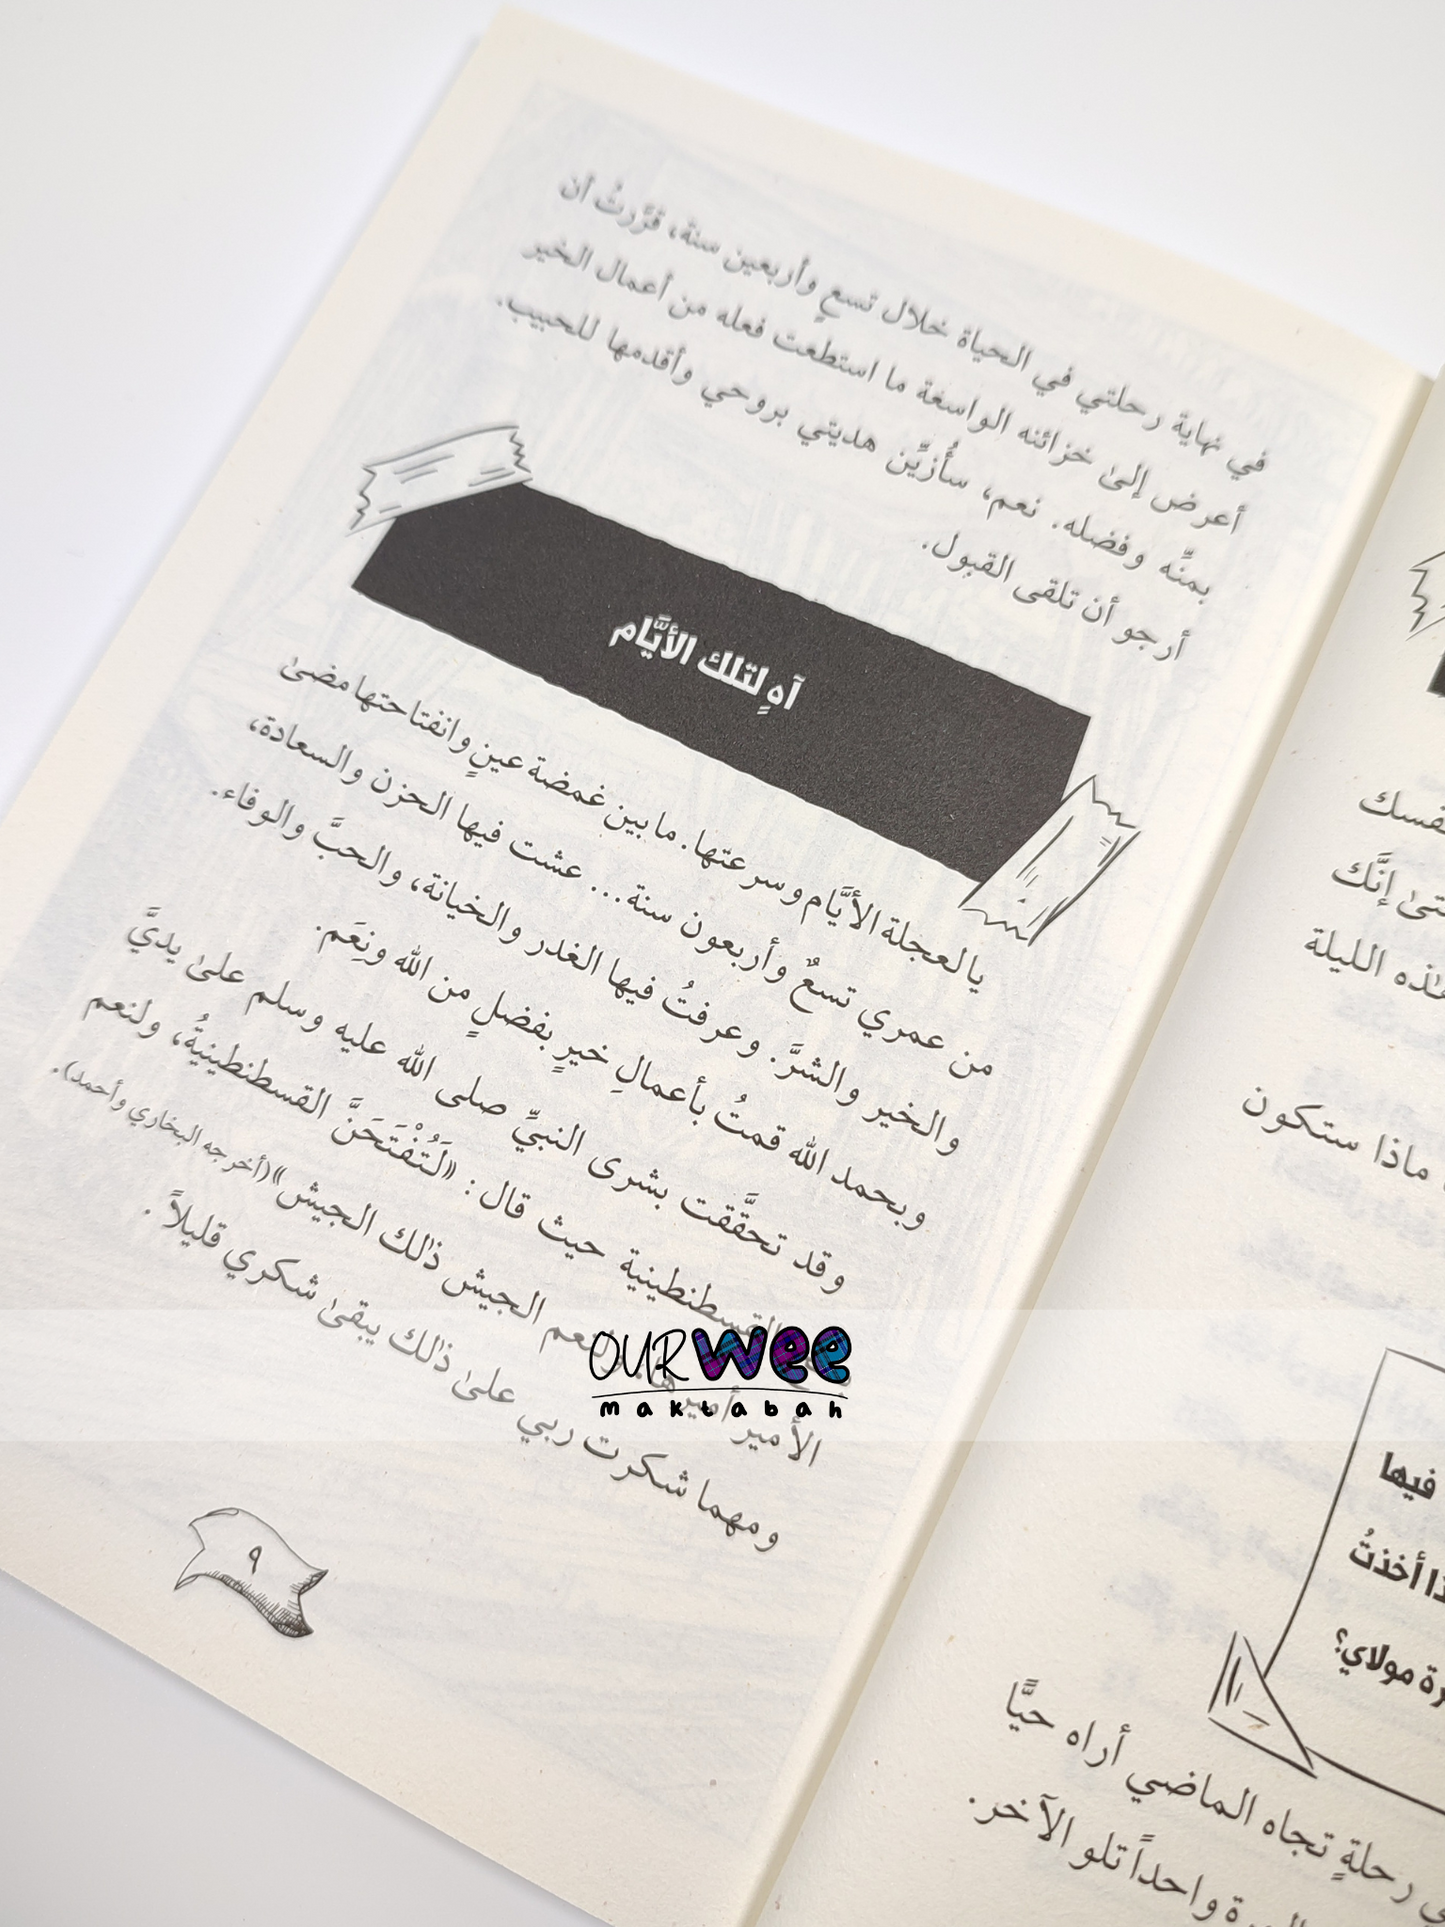 في نهاية رحلتي في الحياة خلال تسعٍ وأربعين سنة، قرَّرتُ أن
أعرض إلىٰ خزائنه الواسعة ما استطعت فعله من أعمال الخير
بمنِّه وفضله. نعم، سأُزيِّن هديتي بروحي وأقدمها للحبيب.
أرجو أن تلقى القبول.
آهٍ لتلك الأيَّام
يالعجلة الأيَّام وسرعتها. ما بين غمضة عينٍ وانفتاحتها مضىٰ
من عمري تسعٌ وأربعون سنة... عشت فيها الحزن والسعادة،
والخير والشرَّ. وعرفتُ فيها الغدر والخيانة، والحبَّ والوفاء.
وبحمد الله قمتُ بأعمالِ خيرٍ بفضلٍ من الله ونِعَم.
وقد تحقَّقت بشرى النبيِّ صلى الله عليه وسلم علىٰ يديَّ
القسطنطينية حيث قال: «لَتُفْتَحَنَّ القسطنطينيةُ، ولنعم
الأمير أميرها، ولنعم الجيش ذٰلك الجيش»(أخرجه البخاري وأحمد).
ومهما شكرت ربي علىٰ ذٰلك يبقىٰ شكري قليلاً .
٩
OUR wee
maktabah
نفسك
إنَّك
الليلة
ماذا ستكون
فيها
أخذتُ
مولاي؟
رحلةٍ تجاه الماضي أراه حيًّا
واحداً تلو الآخر.